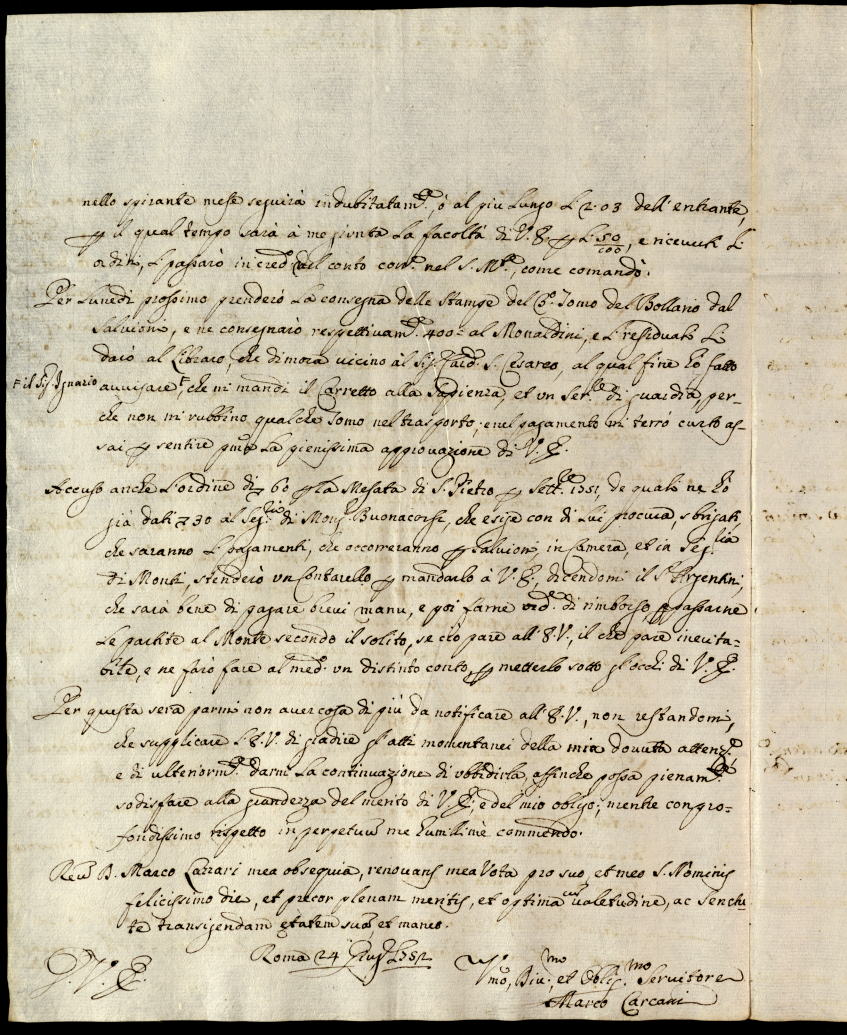 nello spirante mese seguirà indubitatam.e, ò al piu lungo l. 2. o 3 dell'entrante,
p il qual tempo sarà à me giunta la facoltà di V. E. p L. 50/100, e ricevuti l'
ordini, passarò in cred. del conto cor. nel S. M.te, come comandò.
Per lunedi prossimo prenderò la consegna delle stampe del 6.o Tomo del Bollario dal
Salvioni, e ne consegnarò respettivam.e 400: al Monaldini, e l residuato li
darò al libraro, che dimora vicino al Sig. Card. S. Cesareo, al qual fine hò fatto
F il Sig. Ignazio avvisare F, che mi mandi il Carretto alla Sapienza, et un Ser.te di guardia, per-
che non mi rubbino qualche Tomo nel trasporto; e nel pagamento mi terrò curto as-
sai p sentire pma la pienissima approvazione di V. E.
Accuso anche l'ordine di 60 p la Mesata di S. Pietro p Sett.e 1751, de quali ne hò
già dati 30 al Seg.rio di Mons. Buonacorsi, che esige con di lui procura, sbrigati,
che saranno l pagamenti, che occorreranno p Salvioni, in Camera, et in Seg.ria
di Monti, stenderò un Contarello p mandarlo à V. E., dicendomi il S. Argentini,
che sarà bene di pagare brevi manu, e poi farne ord.e di rimborso p passarne
le partite al Monte secondo il solito, se ciò pare all' E. V., il che pare inevita-
bile, e ne farò fare al med. un distinto conto, p metterlo sotto gl'occhi di V. E.
Per questa sera parmi non aver cosa di più da notificare all' E. V., non restandomi,
che supplicare l' E. V. di gradire gl'atti momentanei della mia dovuta attenz.e
e di ulteriorm.e darmi la continuazione di obbidirla, affinche possa pienam.e
sodisfare alla grandezza del merito di V. E., e del mio obligo; mentre con pro-
fondissimo rispetto in perpetuu me humillime commendo.
D. Marco Lazari mea obsequia, renovans mea Vota pro suo, et meo S. Nominis
felicissimo die, et precor plenam meritis, et optima cum valetudine, ac Senectu-
te transigendam etatem suam, et manes.
D. V. E.
Roma 24 1752
Vmo, Div.mo, et Oblig.mo Servitore
Marco Carcani